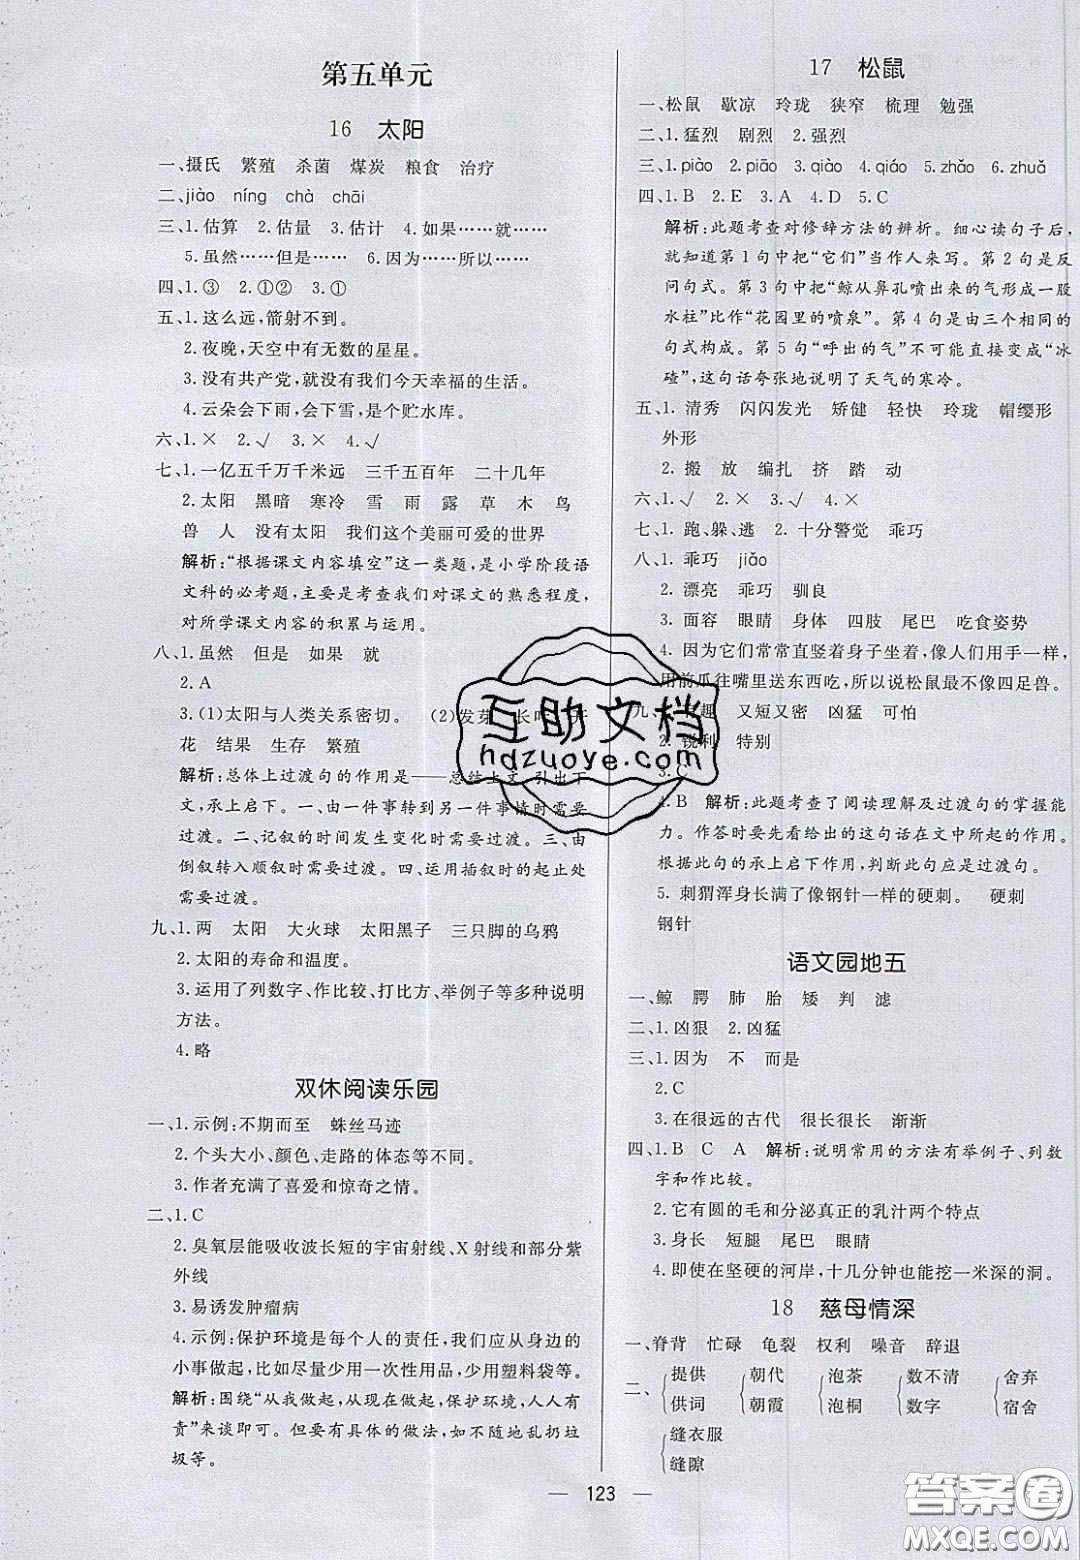 第五单元
16 太阳
一、摄氏 繁殖 杀菌 煤炭 粮食 治疗
二、jiào níng chà chāi
三、1.估算 2.估量 3.估计 4.如果……就……
5.虽然……但是…… 6.因为……所以……
四、1.③ 2.①② 3.①
五、1.这么远,箭射不到。
2.夜晚,天空中有无数的星星。
3.没有共产党,就没有我们今天幸福的生活。
4.云朵会下雨,会下雪,是个贮水库。
六、1.× 2.√ 3.× 4.√
七、1.一亿五千万千米远 三千五百年 二十几年
2.太阳 黑暗 寒冷 雪 雨 露 草 木 鸟
兽 人 没有太阳 我们这个美丽可爱的世界
解析:“根据课文内容填空”这一类题,是小学阶段语
文科的必考题,主要是考查我们对课文的熟悉程度,
对所学课文内容的积累与运用。
八、1.虽然 但是 如果 就
2.A
3.(1)太阳与人类关系密切。 (2)发芽 长叶 开
花 结果 生存 繁殖
解析:总体上过渡句的作用是——总结上文,引出下
文,承上启下。一、由一件事转到另一件事情时需要
过渡。二、记叙的时间发生变化时需要过渡。三、由
倒叙转入顺叙时需要过渡。四、运用插叙时的起止处
需要过渡。
九、1.两 太阳 大火球 太阳黑子 三只脚的乌鸦
2.太阳的寿命和温度。
3.运用了列数字、作比较、打比方、举例子等多种说明
方法。
4.略
双休阅读乐园
一、1.示例:不期而至 蛛丝马迹
2.个头大小、颜色、走路的体态等不同。
3.作者充满了喜爱和惊奇之情。
二、1.C
2.臭氧层能吸收波长短的宇宙射线、X射线和部分紫
外线
3.易诱发肿瘤病
4.示例:保护环境是每个人的责任,我们应从身边的
小事做起,比如尽量少用一次性用品,少用塑料袋等。
解析:围绕“从我做起,从现在做起,保护环境,人人有
责”来谈即可。但要有具体的做法,如不随地乱扔垃
圾等。
17 松鼠
一、松鼠 歇凉 玲珑 狭窄 梳理 勉强
二、1.猛烈 剧烈 2.强烈
三、1.piào 2.piāo 3.qiào 4.qiáo 5.zhǎo 6.zhuǎ
四、1.B 2.E 3.A 4.D 5.C
解析:此题考查对修辞方法的辨析。细心读句子后,
就知道第1句中把“它们”当作人来写。第2句是反
问句式。第3句中把“鲸从鼻孔喷出来的气形成一股
水柱”比作“花园里的喷泉”。第4句是由三个相同的
句式构成。第5句“呼出的气”不可能直接变成“冰
碴”,这句话夸张地说明了天气的寒冷。
五、1.清秀 闪闪发光 矫健 轻快 玲珑 帽缨形
外形
2.搬 放 编扎 挤 踏 动
六、1.√ 2.× 3.√ 4.×
七、1.跑、躲、逃 2.十分警觉 乖巧
八、1.乖巧 jiǎo
2.漂亮 乖巧 驯良
3.面容 眼睛 身体 四肢 尾巴 吃食姿势
4.因为它们常常直竖着身子坐着,像人们用手一样,
用前爪往嘴里送东西吃,所以说松鼠最不像四足兽。
九、趣 又短又密 凶猛 可怕
2.锐利 特别
3.C
4.B 解析:此题考查了阅读理解及过渡句的掌握能
力。作答时要先看给出的这句话在文中所起的作用。
根据此句的承上启下作用,判断此句应是过渡句。
5.刺猬浑身长满了像钢针一样的硬刺。 硬刺
钢针
语文园地五
一、鲸 腭 肺 胎 矮 判 滤
二、1.凶狠 2.凶猛
三、1.因为 不 而是
2.C
3.在很远的古代 很长很长 渐渐
四、1.B C A 解析:说明常用的方法有举例子、列数
字和作比较。
2.它有圆的毛和分泌真正的乳汁两个特点
3.身长 短腿 尾巴 眼睛
4.即使在坚硬的河岸,十几分钟也能挖一米深的洞。
18 慈母情深
一、脊背 忙碌 龟裂 权利 噪音 辞退
二、{提供 {朝代 {泡茶 {数不清 {舍弃
供词 朝霞 泡桐 数字 宿舍
{缝衣服
缝隙
123
互助文档
hdzuoye.com
答案圈
MXQE.COM